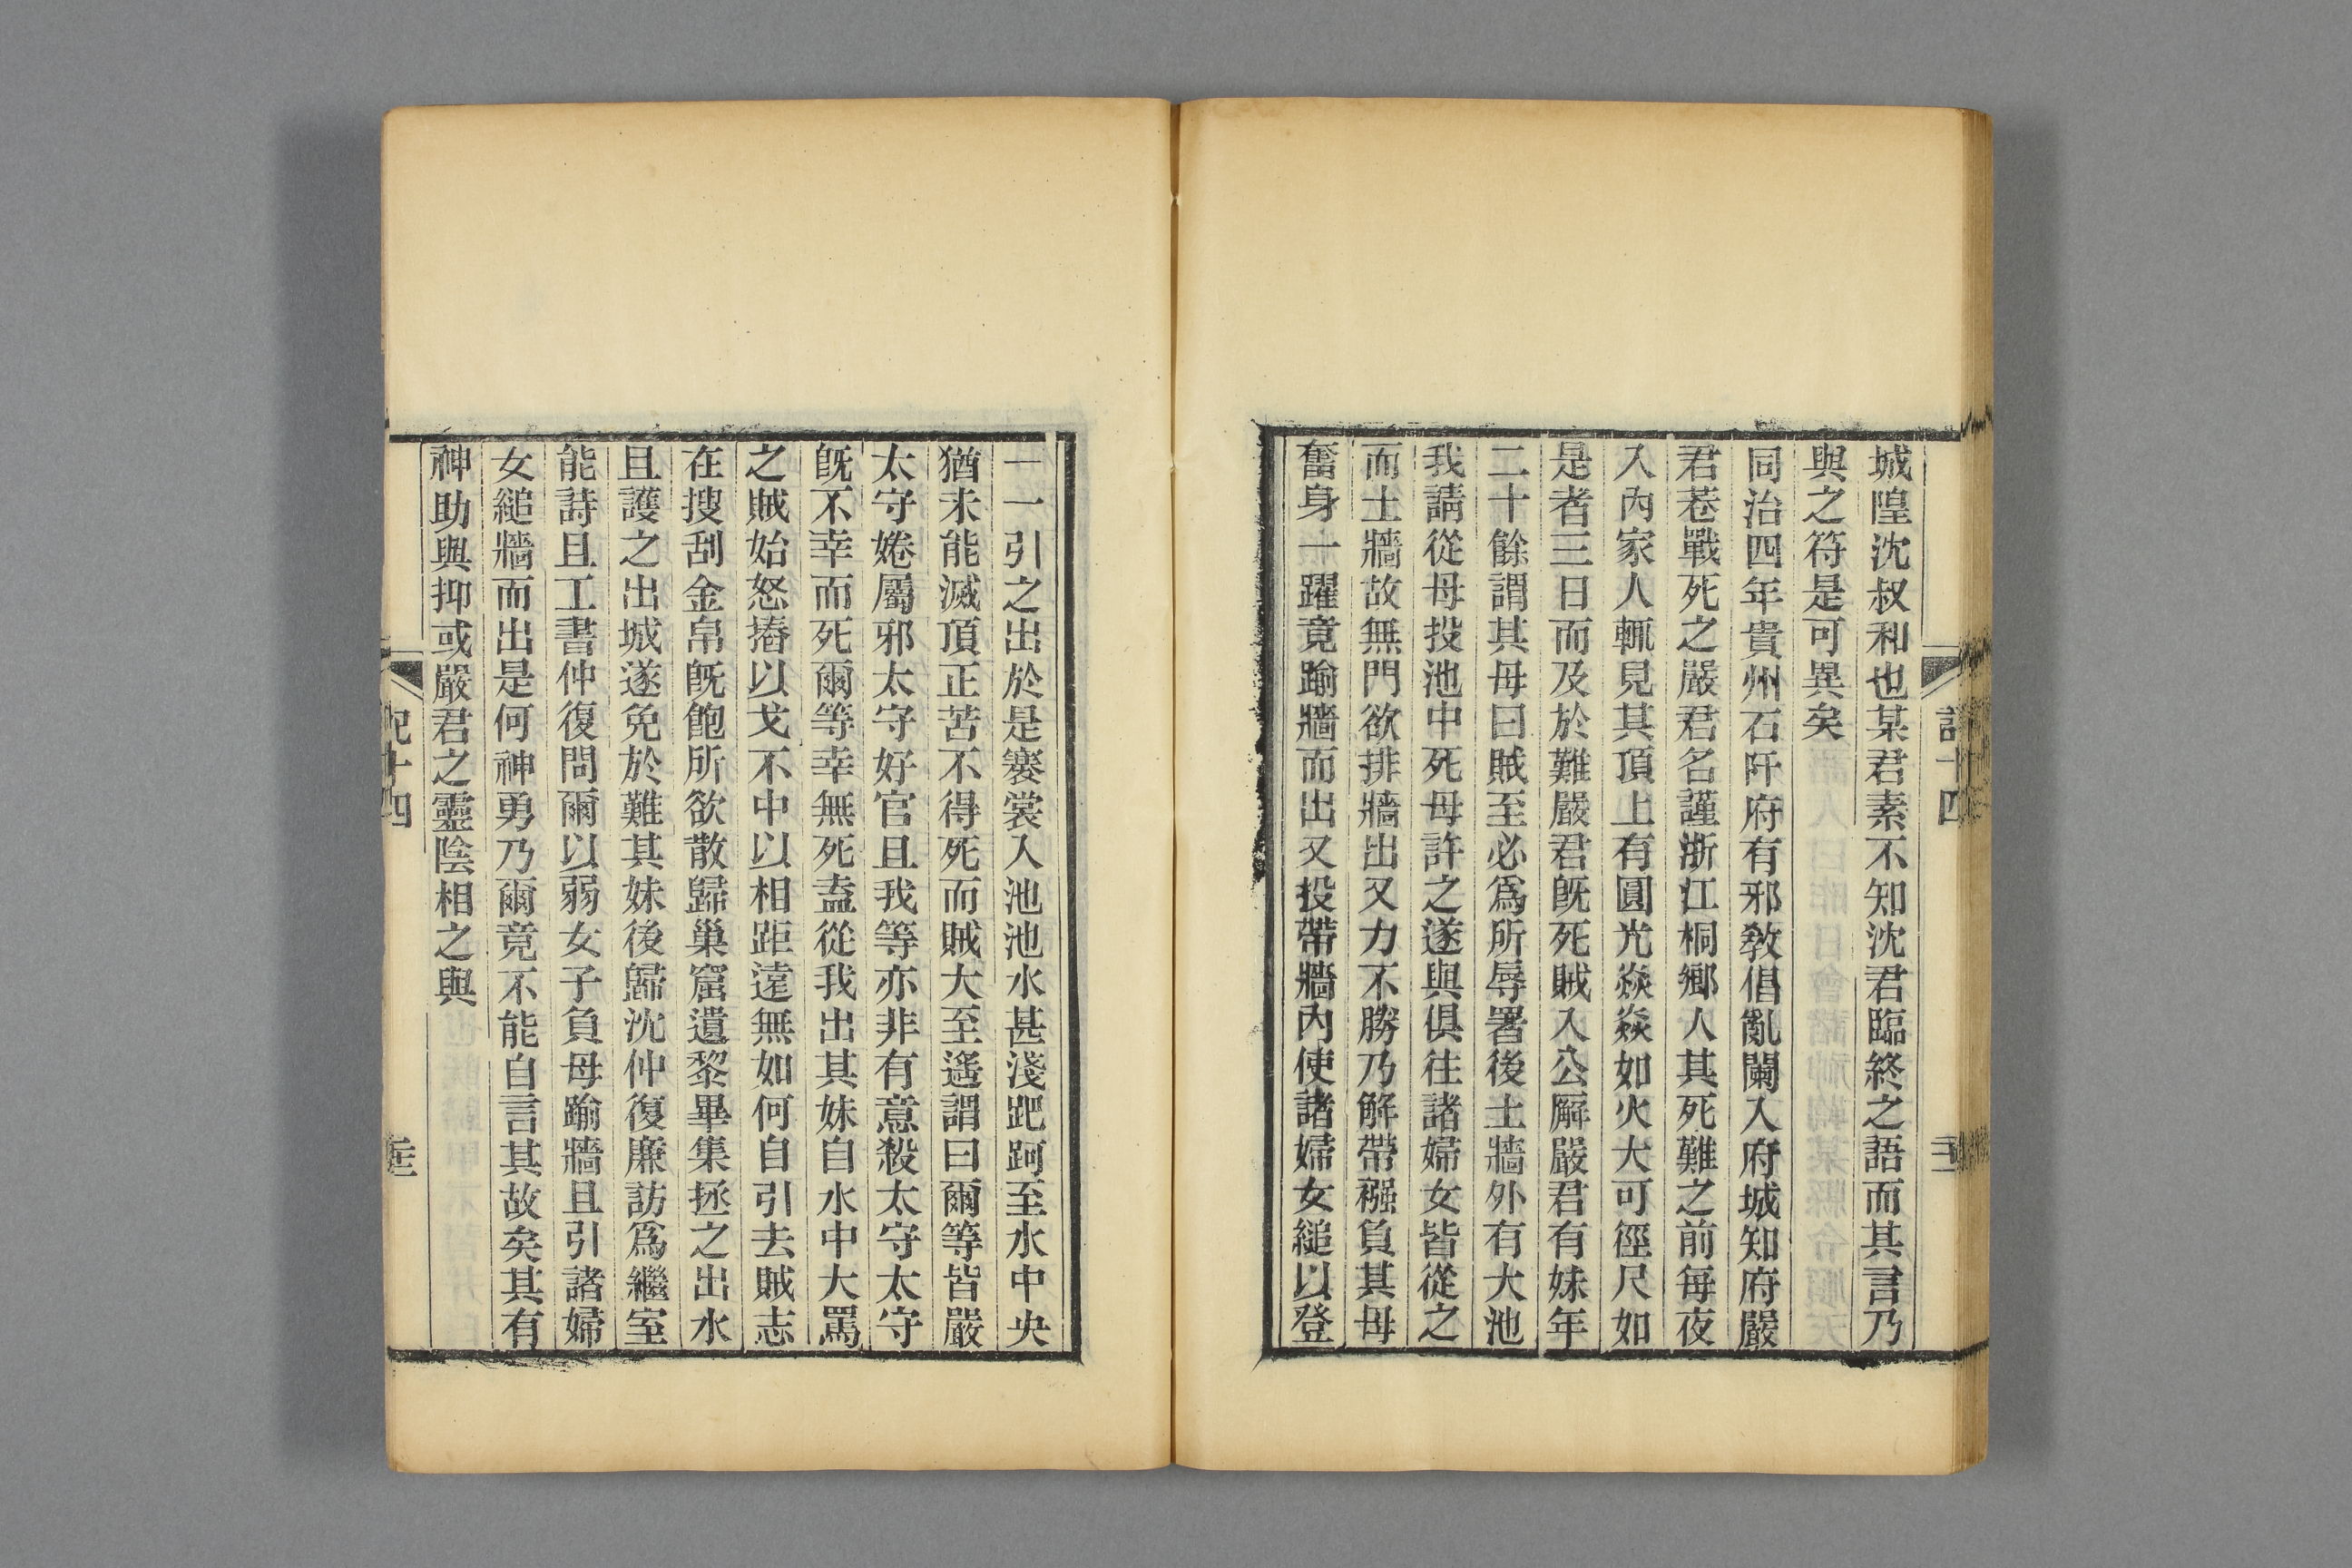 城隍沈叔和也某君素不知沈君臨終之語而其言乃
與之符是可異矣
同治四年貴州石阡府有邪敎倡亂闌入府城知府嚴
君巷戰死之嚴君名謹浙江桐鄉人其死難之前每夜
入內家人輒見其頂上有圓光焱焱如火大可徑尺如
是者三日而及於難嚴君旣死賊入公廨嚴君有妹年
二十餘謂其母曰賊至必爲所辱署後土牆外有大池
我請從母投池中死母許之遂與俱往諸婦女皆從之
而土牆故無門欲排牆出又力不勝乃解帶襁負其母
奮身一躍竟踰牆而出又投帶牆內使諸婦女縋以登
一一引之出於是褰裳入池池水甚淺跁跒至水中央
猶未能滅頂正苦不得死而賊大至遙謂曰爾等皆嚴
太守婘屬邪太守好官且我等亦非有意殺太守太守
旣不幸而死爾等幸無死盍從我出其妹自水中大罵
之賊始怒摏以戈不中以相距遠無如何自引去賊志
在搜刮金帛旣飽所欲散歸巢窟遺黎畢集拯之出水
且護之出城遂免於難其妹後歸沈仲復廉訪爲繼室
能詩且工書仲復問爾以弱女子負母踰牆且引諸婦
女縋牆而出是何神勇乃爾竟不能自言其故矣其有
神助與抑或嚴君之靈陰相之與
記十四